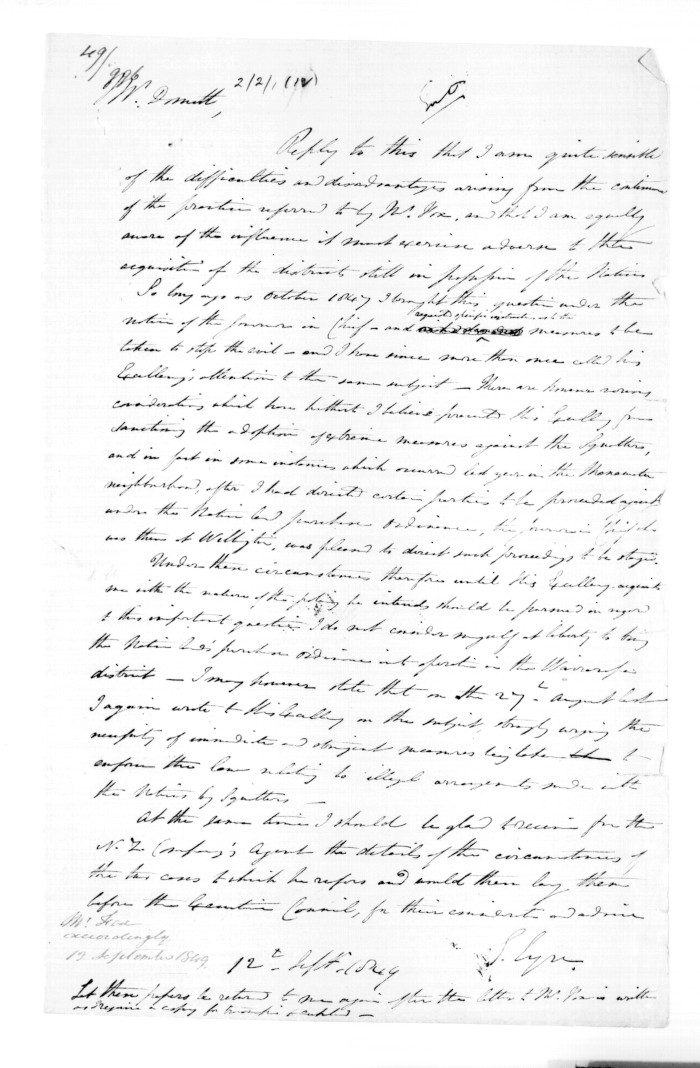 49/
Mr. Domett,
2/2/1 (12)
Reply to this that I am quite sensible
of the difficulties and disadvantages arising from the continuance
of the practice referred to by Mr. Fox, and that I am equally
aware of the influence it must exercise adverse to the
acquisition of the districts still in possession of the Natives
So long ago as October 1847 I brought this question under the
request specific instructions as to the
notice of the Governor in Chief - and measures to be
taken to stop the evil - and I have since more than once called his
Excellency's attention to the same subject - There are however various
considerations which have hitherto I believe prevented His Excellency from
sanctioning the adoption of extreme measures against the Squatters,
and in fact in some instances which occurred last year in the Manawatu
neighbourhood, after I had directed certain parties to be proceeded against
under the Native land purchase Ordinance, the Governor in Chief who
was then at Wellington, was pleased to direct such proceedings to be stayed.
Under these circumstances therefore until His Excellency acquaints
me with the nature of the policy he intends should be pursued in regard
to this important question I do not consider myself at liberty to bring
the Native land purchase ordinance into operation in the Wairarapa
district - I may however state that on the 27th August last
I again wrote to His Excellency on the subject, strongly urging the
necessity of immediate and stringent measures being taken to
enforce the law relating to illegal arrangements made with
the Natives by Squatters -
At the same time I should be glad to receive from the
N.Z. Company's Agent the details of the circumstances of
the two cases to which he refers and would then lay them
before the Executive Council, for their comments and advice
E. Eyre.
Mr. Fox
accordingly
13 September 1849
12th Septr. 1849
Let these papers be returned to me again after the letter to Mr. Fox is written
as I require a copy for